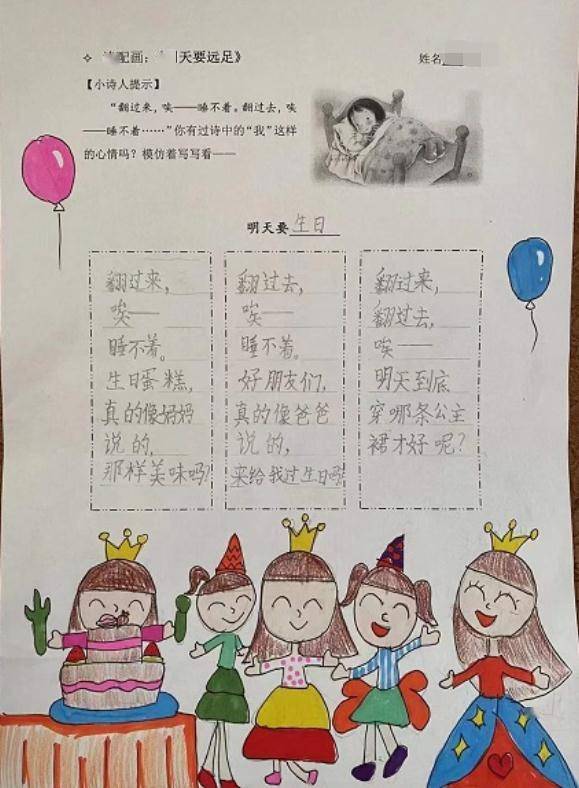 配画：
天要远足》
姓名
【小诗人提示】
“翻过来，唉——睡不着。翻过去，唉
——睡不着……”你有过诗中的“我”这样
的心情吗？模仿着写写看——
明天要生日
翻过来，
唉——
睡不着。
生日蛋糕，
真的像妈妈
说的，
那样美味吗？
翻过去，
唉——
睡不着。
好朋友们，
真的像爸爸
说的，
来给我过生日吗
翻过来，
翻过去，
唉——
明天到底
穿哪条公主
裙才好呢？